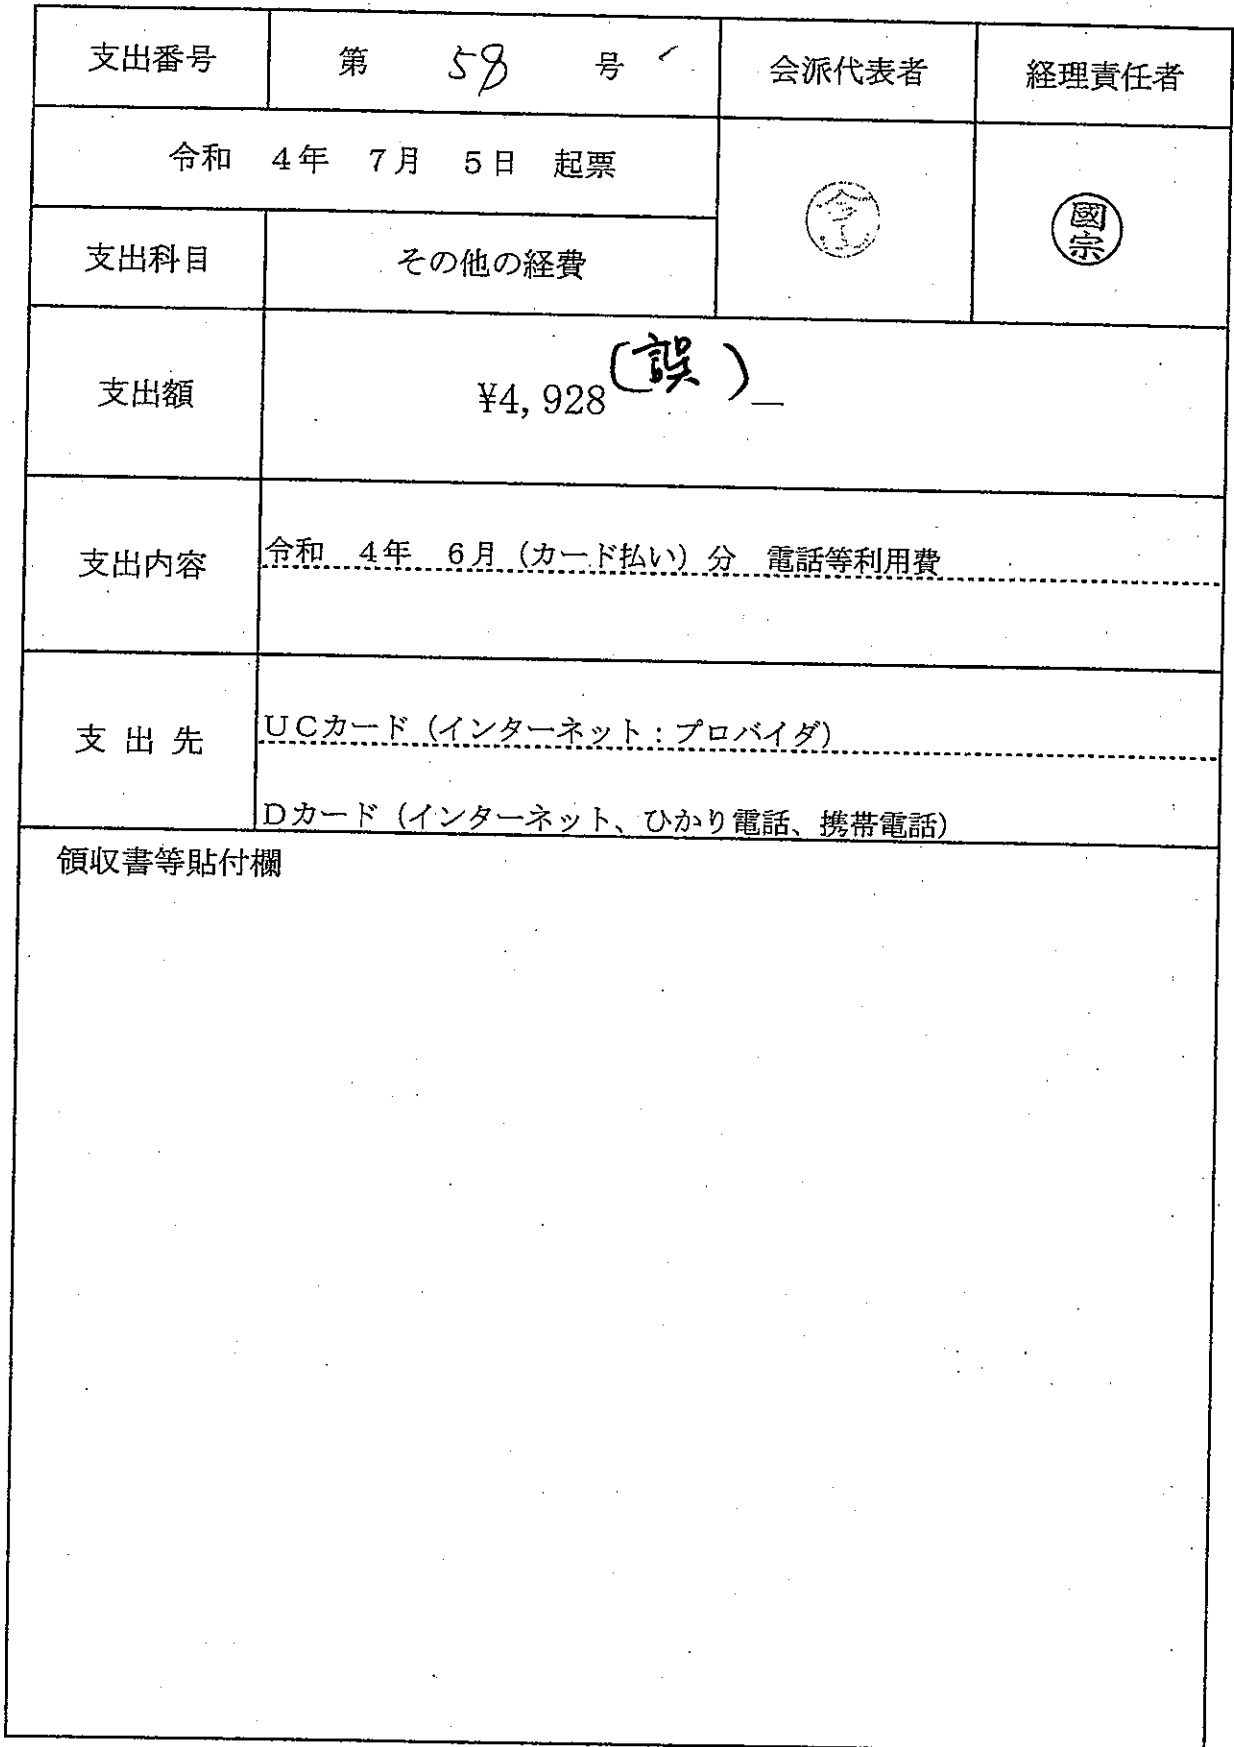 支出番号 第 58 号 会派代表者 経理責任者
令和 4年 7月 5日 起票
國宗
支出科目 その他の経費
支出額 ¥4,928(誤)—
支出内容 令和 4年 6月(カード払い)分 電話等利用費
支出先 UCカード(インターネット:プロバイダ)
Dカード(インターネット、ひかり電話、携帯電話)
領収書等貼付欄